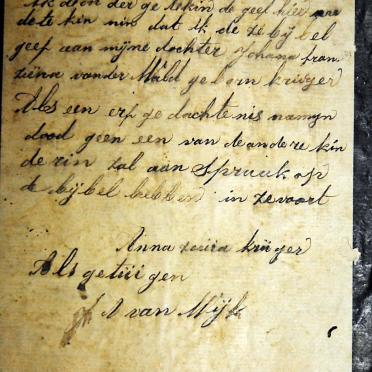 Ik don der ge tekin de geef hier me
de te kin nin dat Ik de ze bybel
geef aan myne dochter Johana fran
ziena vander Wald ge born kruger
Als een erf ge dachte nis namyn
dood geen een van de andere kin
derin zal aan Spraak op
de bybel hebben in zevoort
Anna kruger
Als getuigen
A van Wyk